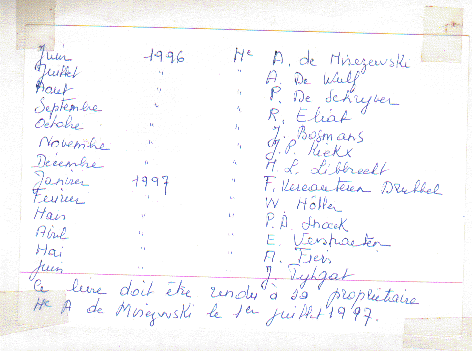 Juin 1996 Mr A. de Misezewski
Juillet " " A. De Wulf
Aout " " P. De Schryver
Septembre " " R. Eliat
Octobre " " J. Bosmans
Novembre " " J.P. Kickx
Décembre " " H. L. Libbrecht
Janvier 1997 " F.
Fevrier " " W. Hotter
Mars " " P.
Avril " " E. Verstraeten
Mai " "
Juin " " J. Tytgat
Ce livre doit être rendu à sa propriétaire
Mr A de Misezewski le 1er juillet 1997.